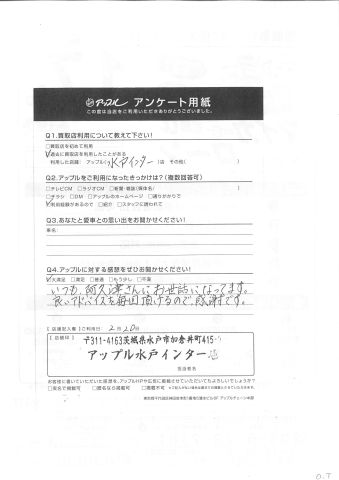 アップル アンケート用紙
この度は当店をご利用いただきありがとうございました。
Q1.買取店利用について教えて下さい!
□買取店を初めて利用
☑過去に買取店を利用したことがある
利用した店舗: アップル(水戸インター )店 その他( )
Q2.アップルをご利用になったきっかけは?(複数回答可)
□テレビCM □ラジオCM □新聞・雑誌(媒体名/ )
□チラシ □DM □アップルのホームページ □通りがかりで
☑利用経験があるので □紹介 □スタッフに誘われて
Q3.あなたと愛車との思い出をお聞かせください!
車名:
Q4.アップルに対する感想をぜひお聞かせください!
☑大満足 □満足 □普通 □もう少し □不満
いつも、阿久津さんにお世話になってます。
良いアドバイスを毎回頂けるので、感謝です。
【店舗記入欄】ご利用日: 2月20日
【店舗印】
〒311-4163茨城県水戸市加倉井町415-
アップル水戸インター店
担当者名
お客様に書いていただいた感想を、アップルHPや広告に掲載させていただいてもよろしいでしょうか?
□実名で掲載可 □匿名なら掲載可 □掲載不可
O.T